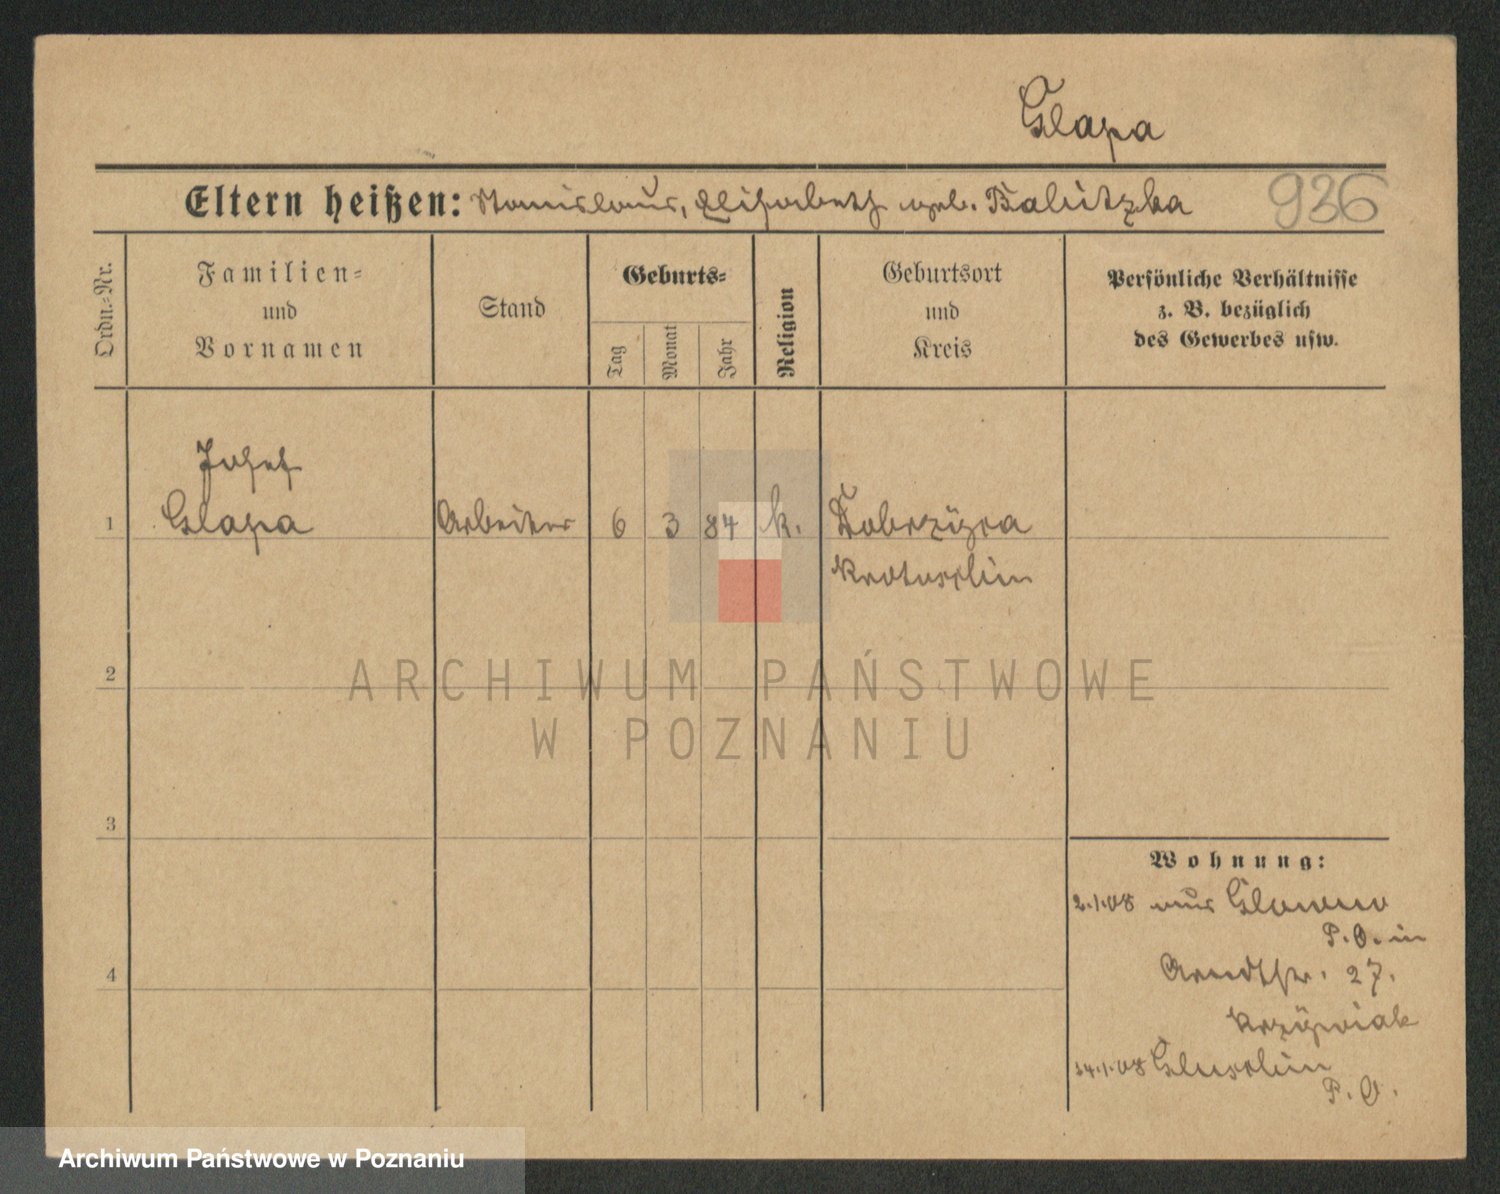 Glapa
Eltern heißen: Stanislaus, Elisabeth geb. Babitzka 936
Ordn.-Nr.
Familien-
und
Vornamen
Stand
Geburts-
Tag
Monat
Jahr
Religion
Geburtsort
und
Kreis
Persönliche Verhältnisse
z. B. bezüglich
des Gewerbes usw.
Josef
1 Glapa Arbeiter 6 3 84 k. Dobrzyca
Krotoschin
2
ARCHIWUM PAŃSTWOWE
W POZNANIU
3
Wohnung:
2.1.08 aus Glowno
P.O. in
4
Arndtstr. 27.
Krzywiak
14.1.08 Gluschin
P.O.
Archiwum Państwowe w Poznaniu